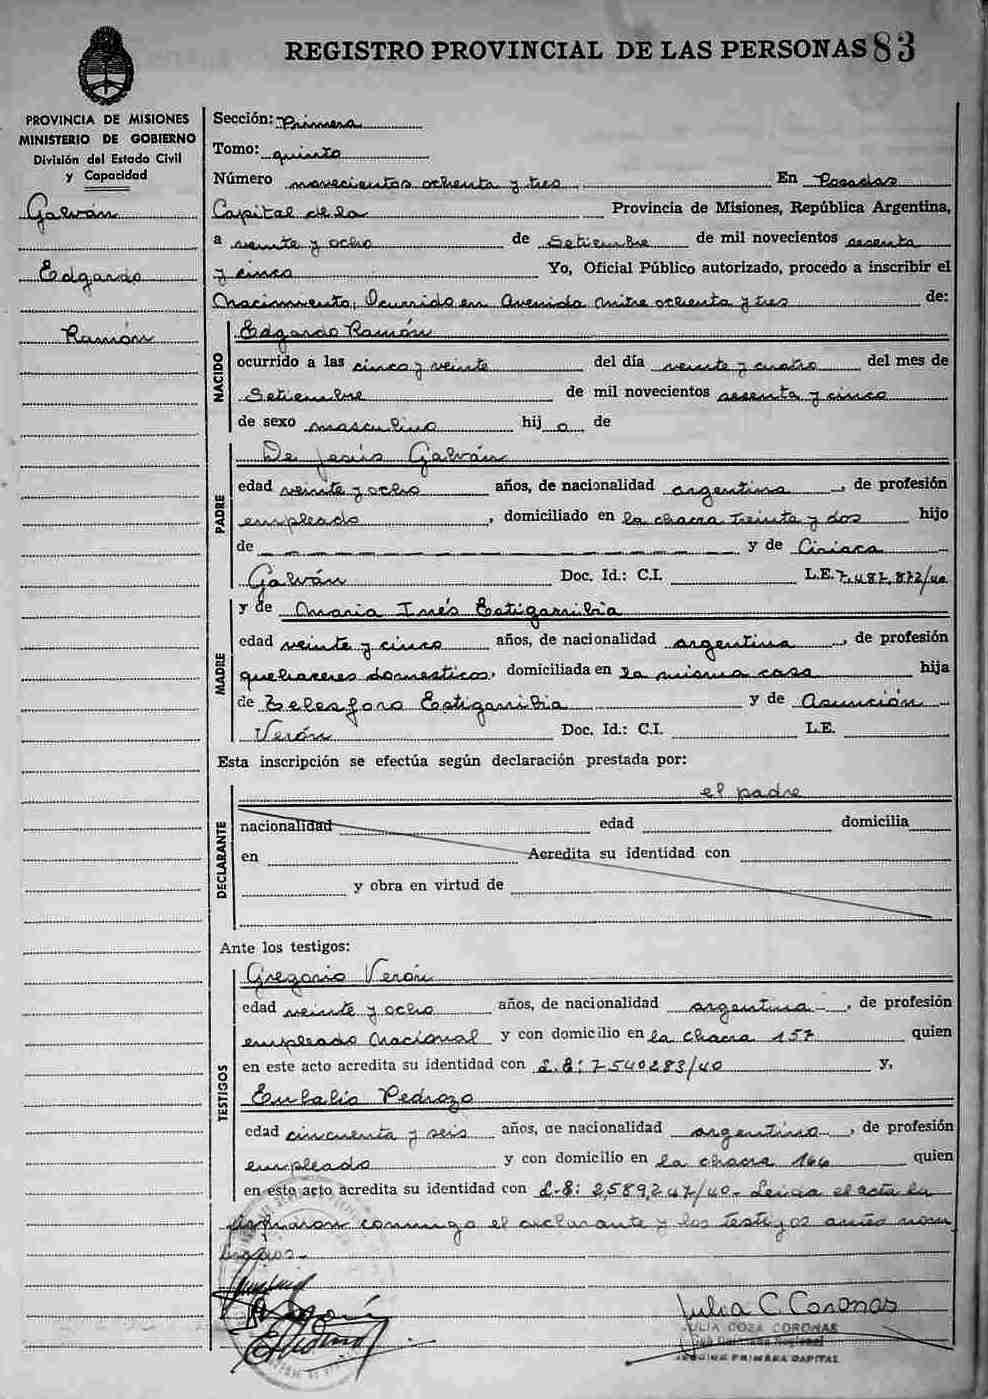 REGISTRO PROVINCIAL DE LAS PERSONAS 83
PROVINCIA DE MISIONES
MINISTERIO DE GOBIERNO
División del Estado Civil
y Capacidad
Galván
Edgardo
Ramón
Sección: Primera
Tomo: quinto
Número novecientos ochenta y tres En Posadas
Capital de la Provincia de Misiones, República Argentina,
a veinte y ocho de Setiembre de mil novecientos sesenta
y cinco Yo, Oficial Público autorizado, procedo a inscribir el
Nacimiento, Ocurrido en Avenida Mitre ochenta y tres de:
NACIDO
Edgardo Ramón
ocurrido a las cinco y veinte del día veinte y cuatro del mes de
Setiembre de mil novecientos sesenta y cinco
de sexo masculino hij o de
PADRE
De Jesús Galván
edad veinte y ocho años, de nacionalidad argentina, de profesión
empleado, domiciliado en la chacra treinta y dos hijo
de y de Ciriaca
Galván Doc. Id.: C.I. L.E. 7.487.872/40
MADRE
y de Maria Inés Estigarribia
edad veinte y cinco años, de nacionalidad argentina, de profesión
quehaceres domesticos, domiciliada en la misma casa hija
de Telesforo Estigarribia y de Asunción
Verón Doc. Id.: C.I. L.E.
Esta inscripción se efectúa según declaración prestada por:
DECLARANTE
el padre
nacionalidad edad domicilia
en Acredita su identidad con
y obra en virtud de
Ante los testigos:
TESTIGOS
Gregorio Verón
edad veinte y ocho años, de nacionalidad argentina, de profesión
empleado Nacional y con domicilio en la chacra 157 quien
en este acto acredita su identidad con L.E: 7540283/40 y,
Eulalio Pedrozo
edad cincuenta y seis años, de nacionalidad argentino, de profesión
empleado y con domicilio en la chacra 166 quien
en este acto acredita su identidad con L.E: 2,589,247/40- Leida el acta la
firmaron conmigo el declarante y los testigos antes nom
brados.-
Julia C. Coronas
JULIA COZA CORONAS
CAPITAL